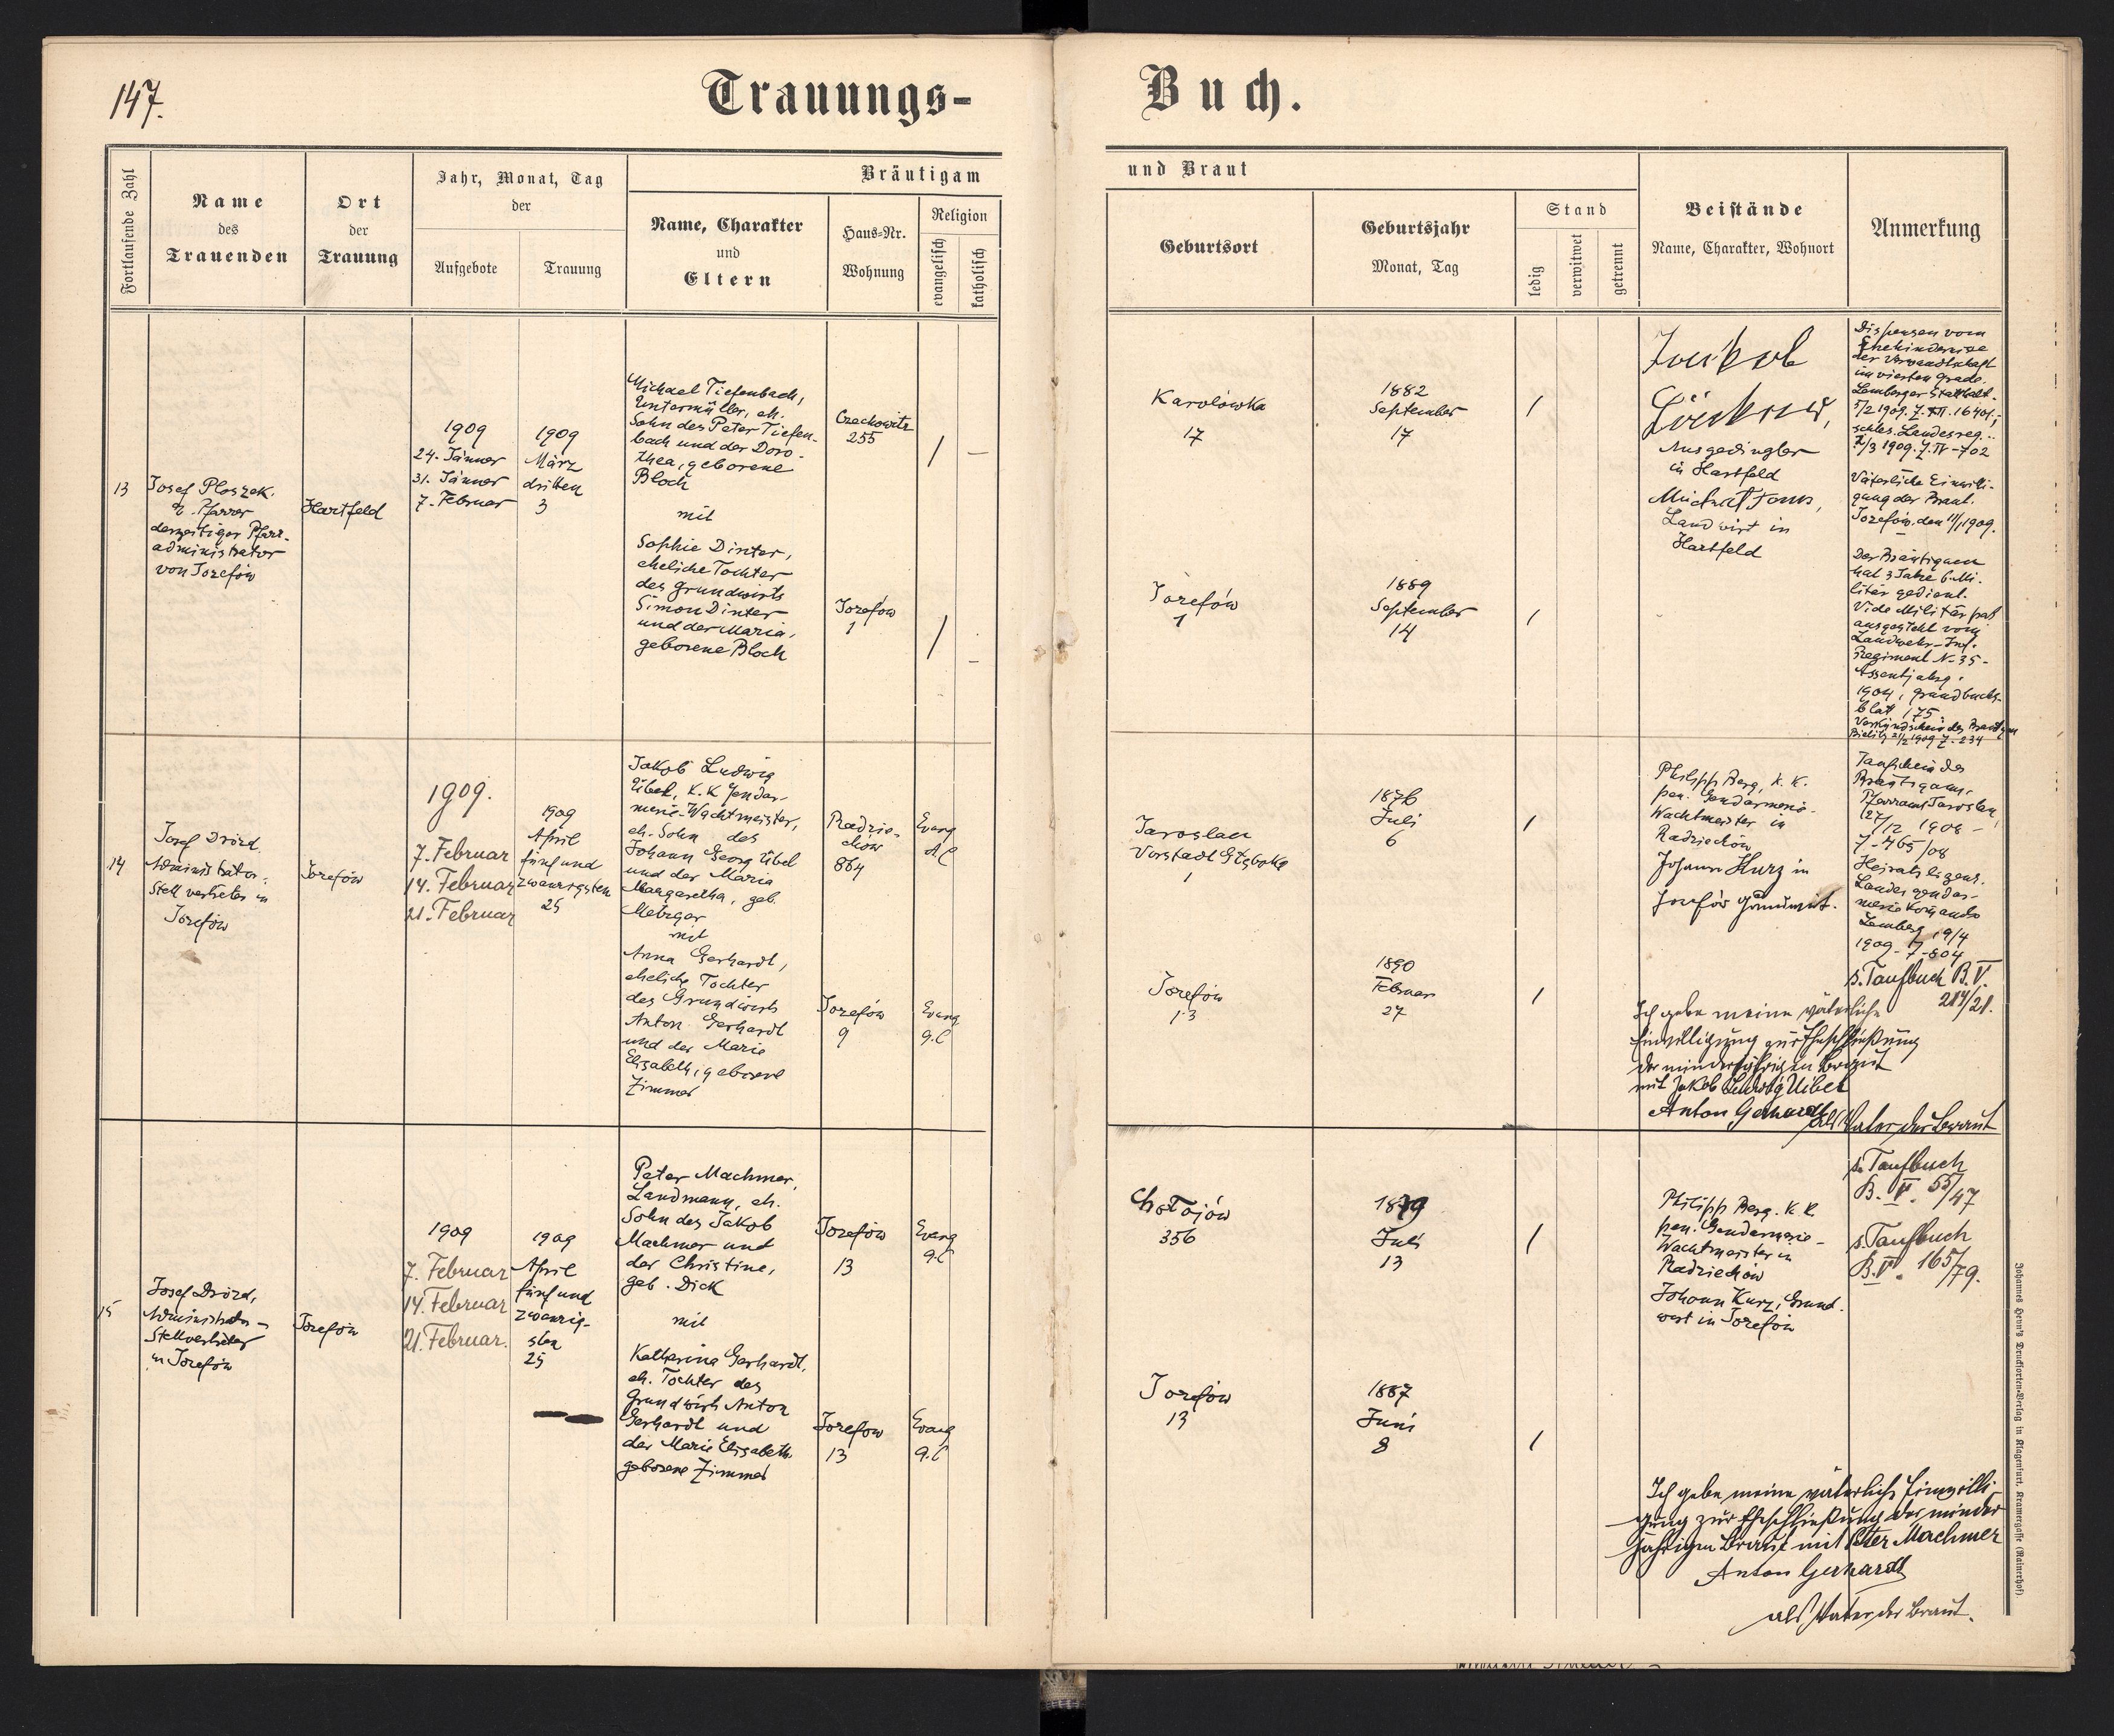 147.
Trauungs-
Buch.
Fortlaufende Zahl
Name
des
Trauenden
Ort
der
Trauung
Jahr, Monat, Tag
der
Aufgebote
Trauung
Bräutigam
Name, Charakter
und
Eltern
Haus-Nr.
Wohnung
Religion
evangelisch
katholisch
und Braut
Geburtsort
Geburtsjahr
Monat, Tag
Stand
ledig
verwitwet
getrennt
Beistände
Name, Charakter, Wohnort
Anmerkung
13
Josef Ploszek.
Pfarrer
derzeitiger Pfarr-
administrator
von Josefów
Hartfeld
1909
24. Jänner
31. Jänner
7. Februar
1909
März
dritten
3
Michael Tiefenbach,
Untermüller, eh.
Sohn des Peter Tiefen-
bach und der Doro-
thea, geborene
Bloch
mit
Sophie Dinter,
eheliche Tochter
des Grundwirts
Simon Dinter
und der Maria,
geborene Bloch
Czechowitz
255
/
—
Josefów
1
/
—
Karolówka
17
1882
September
17
/
Josefów
1
1889
September
14
/
Jakob
Ausgedingler
in Hartfeld
Landwirt in
Hartfeld
Dispensen vom
Ehehindernisse
der Verwandtschaft
im vierten Grade.
Lemberger Statthalt.
5/2 1909. Z. XII. 16401.;
schles. Landesreg.
1/3 1909. Z. IV-702
Väterliche Einwilli-
gung der Braut.
Josefów, den 11/1 1909.
Der Bräutigam
hat 3 Jahre b. Mi-
litär gedient.
Vide Militärpaß
ausgestellt vom
Landwehr-Inf.
Regiment N-35-
Assentjahrg.
1904, Grundbuchs-
blatt 175
Verkündschein des Bräutigam
Bielitz 21/2 1909 Z-234
14
Josef Drózd.
Administrator-
Stellvertreter in
Josefów
Josefów
1909.
7. Februar
14. Februar
21. Februar
1909
April
fünfund
zwanzigsten
25
Jakob Ludwig
Übel, K.K Gendar-
merie-Wachtmeister,
eh. Sohn des
Johann Georg Übel
und der Maria
Margaretha, geb.
Metzger
mit
Anna Gerhardt,
eheliche Tochter
des Grundwirts
Anton Gerhardt
und der Marie
Elisabeth, geborene
Zimmer
Radzie-
chów
864
Evang
A.C
Josefów
9
Evang
A.C
Jaroslau
Vorstadt Głęboka
1
1876
Juli
6
/
Josefów
13
1890
Februar
27
/
Philipp Berg, K. K.
pen. Gendarmerie-
Wachtmeister in
Radziechów
Johann Kurz in
Josefów Grundwirt.
Taufschein des
Bräutigams,
Pfarramt Jaroslau,
27/12 1908 -
Z-465/08
Heiratslizenz.
Landesgendar-
merie Komando
Lemberg 19/4
1909 - Z-804
s. Taufbuch B. V.
214/21.
Ich gebe meine väterliche
Einwilligung zur Eheschließung
der minderjährigen Braut
mit Jakob Ludwig Uibel
Anton Gerhardt
als Vater der Braut
15
Josef Drózd,
Administrator-
Stellvertreter
in Josefów
Josefów
1909
7. Februar
14. Februar
21. Februar.
1909
April
fünfund
zwanzig-
sten
25
Peter Machmer,
Landmann, eh.
Sohn des Jakob
Machmer und
der Christine,
geb. Dick
mit
Katharina Gerhardt,
eh. Tochter des
Grundwirts Anton
Gerhardt und
der Marie Elisabeth.
geborene Zimmer
Josefów
13
Evang
A.C
Josefów
13
Evang
A.C
Chołojów
356
1879
Juli
13
/
Josefów
13
1887
Juni
8
/
Philipp Berg. K. K.
pen. Gendarmerie-
Wachtmeister in
Radziechów
Johann Kurz, Grund-
wirt in Josefów
s. Taufbuch
B. V. 55/47
s. Taufbuch
B. V. 165/79.
Ich gebe meine väterliche Einwilli-
gung zur Eheschließung der minder
jährigen Braut mit Peter Machmer
Anton Gerhardt
als Vater der Braut.
Johannes Heyn's Drucksorten-Verlag in Klagenfurt, Kramergasse (Rainerhof).